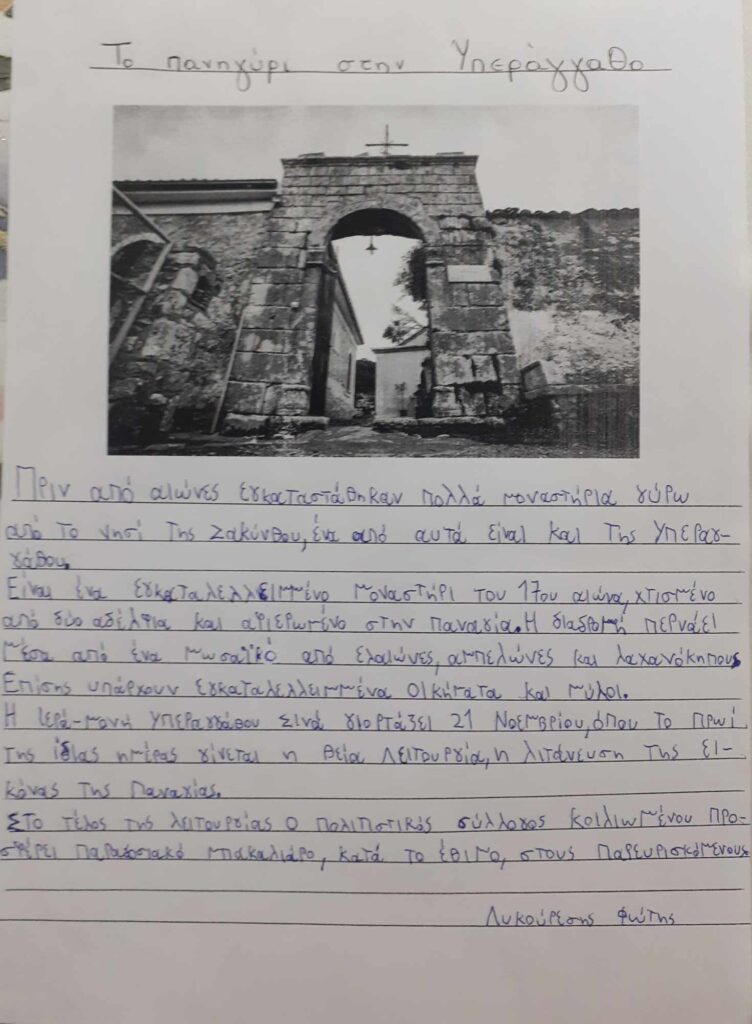 Το πανηγύρι στην Υπεράγγαθο
Πριν από αιώνες εγκαταστάθηκαν πολλά μοναστήρια γύρω
από το νησί της Ζακύνθου, ένα από αυτά είναι και της Υπεραγ-
γάθου.
Είναι ένα εγκαταλελλειμμένο μοναστήρι του 17ου αιώνα, χτισμένο
από δύο αδέλφια και αφιερωμένο στην Παναγία. Η διαδρομή περνάει
μέσα από ένα μωσαϊκό από ελαιώνες, αμπελώνες και λαχανόκηπους
Επίσης υπάρχουν εγκαταλελλειμμένα οικήματα και μύλοι.
Η Ιερά-μονή Υπεραγγάθου Σινά γιορτάζει 21 Νοεμβρίου, όπου το πρωί
της ίδιας ημέρας γίνεται η θεία λειτουργία, η λιτάνευση της ει-
κόνας της Παναγίας.
Στο τέλος της λειτουργίας ο πολιτιστικός σύλλογος Κοιλιωμένου προ-
σφέρει παραδοσιακό μπακαλιάρο, κατά το έθιμο, στους παρευρισκόμενους.
Λυκούρεσης Φώτης